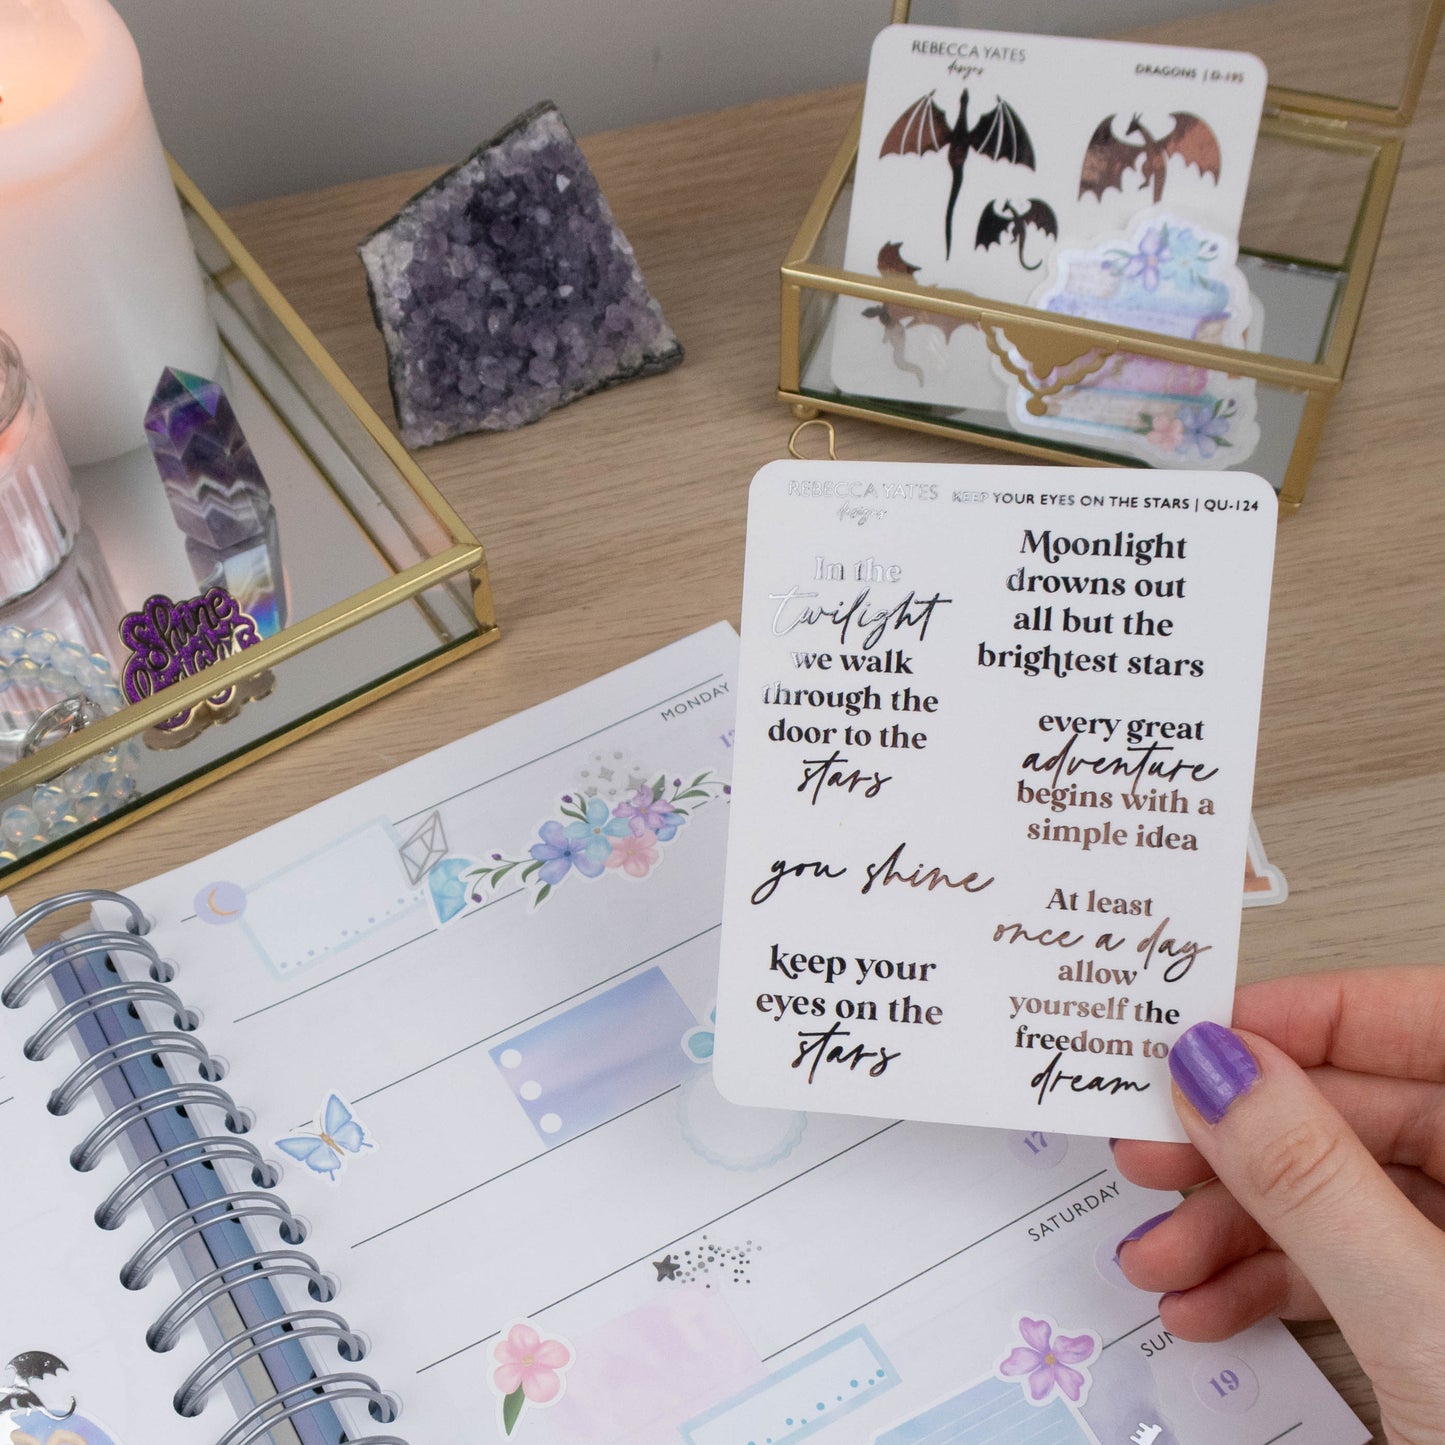 REBECCA YATES
designs
DRAGONS | D-195
REBECCA YATES
designs
KEEP YOUR EYES ON THE STARS | QU-124
In the
twilight
we walk
through the
door to the
stars
you shine
keep your
eyes on the
stars
Moonlight
drowns out
all but the
brightest stars
every great
adventure
begins with a
simple idea
At least
once a day
allow
yourself the
freedom to
dream
shine
MONDAY
17
SATURDAY
19